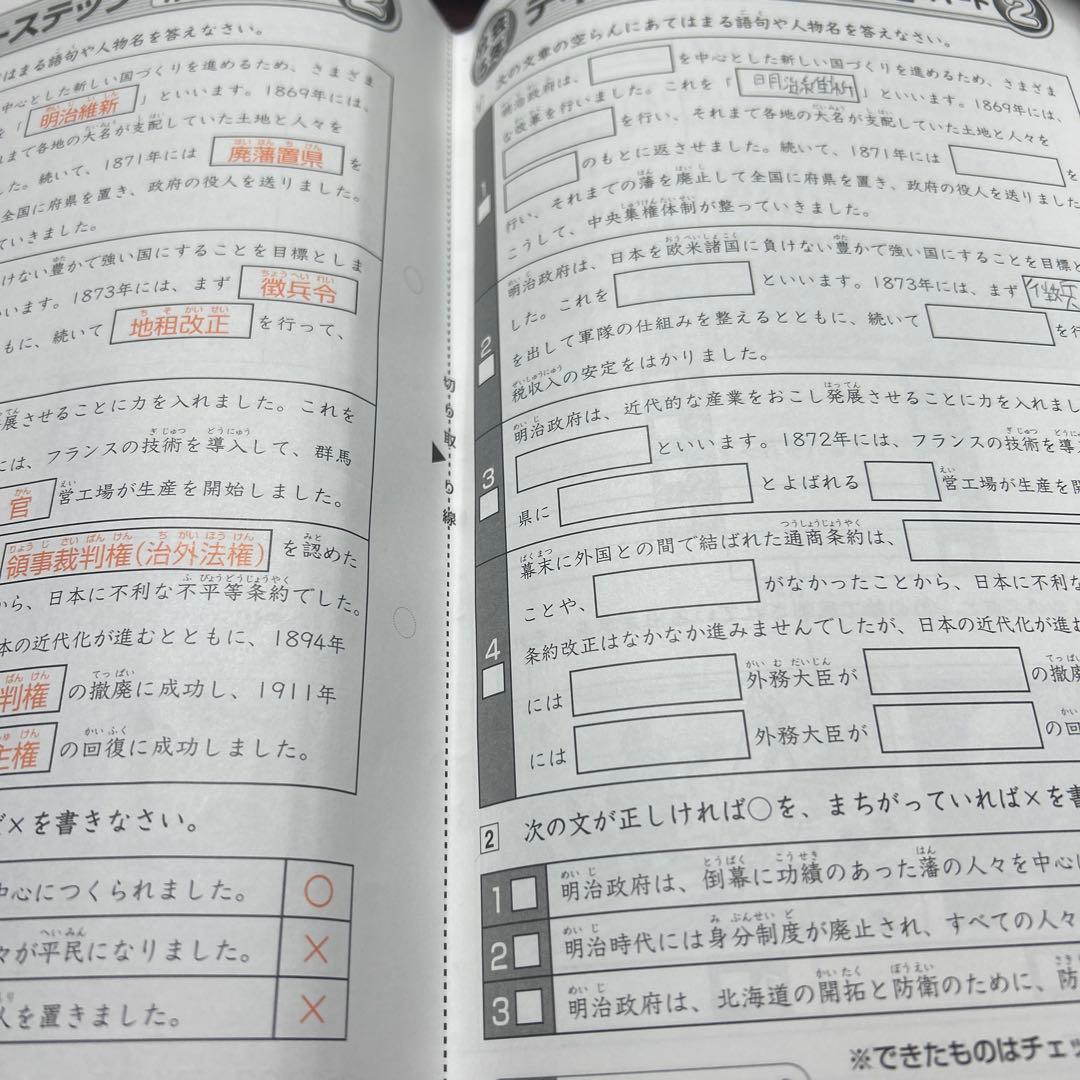 ステップ
2
はまる語句や人物名を答えなさい。
中心とした新しい国づくりを進めるため、さまざま
を「明治維新」といいます。1869年には、
まで各地の大名が支配していた土地と人々を
した。続いて、1871年には 廃藩置県 を
全国に府県を置き、政府の役人を送りました。
ていきました。
けない豊かで強い国にすることを目標としま
います。1873年には、まず 徴兵令
もに、続いて 地租改正 を行って、
展させることに力を入れました。これを
には、フランスの技術を導入して、群馬
官 営工場が生産を開始しました。
領事裁判権(治外法権) を認めた
から、日本に不利な不平等条約でした。
本の近代化が進むとともに、1894年
判権 の撤廃に成功し、1911年
主権 の回復に成功しました。
×を書きなさい。
中心につくられました。 ○
々が平民になりました。 ×
人を置きました。 ×
切り取り線
2
次の文章の空らんにあてはまる語句や人物名を答えなさい。
1
明治政府は、 を中心とした新しい国づくりを進めるため、さまざま
な改革を行いました。これを「明治維新」といいます。1869年には、
を行い、それまで各地の大名が支配していた土地と人々を
のもとに返させました。続いて、1871年には を
行い、それまでの藩を廃止して全国に府県を置き、政府の役人を送りました
こうして、中央集権体制が整っていきました。
2
明治政府は、日本を欧米諸国に負けない豊かで強い国にすることを目標と
した。これを といいます。1873年には、まず 徴兵
を出して軍隊の仕組みを整えるとともに、続いて を行
税収入の安定をはかりました。
3
明治政府は、近代的な産業をおこし発展させることに力を入れまし
といいます。1872年には、フランスの技術を導
県に とよばれる 営工場が生産を開
4
幕末に外国との間で結ばれた通商条約は、
ことや、 がなかったことから、日本に不利な
条約改正はなかなか進みませんでしたが、日本の近代化が進む
には 外務大臣が の撤廃
には 外務大臣が の回
2 次の文が正しければ○を、まちがっていれば×を書
1 明治政府は、倒幕に功績のあった藩の人々を中心に
2 明治時代には身分制度が廃止され、すべての人々
3 明治政府は、北海道の開拓と防衛のために、防
※できたものはチェッ